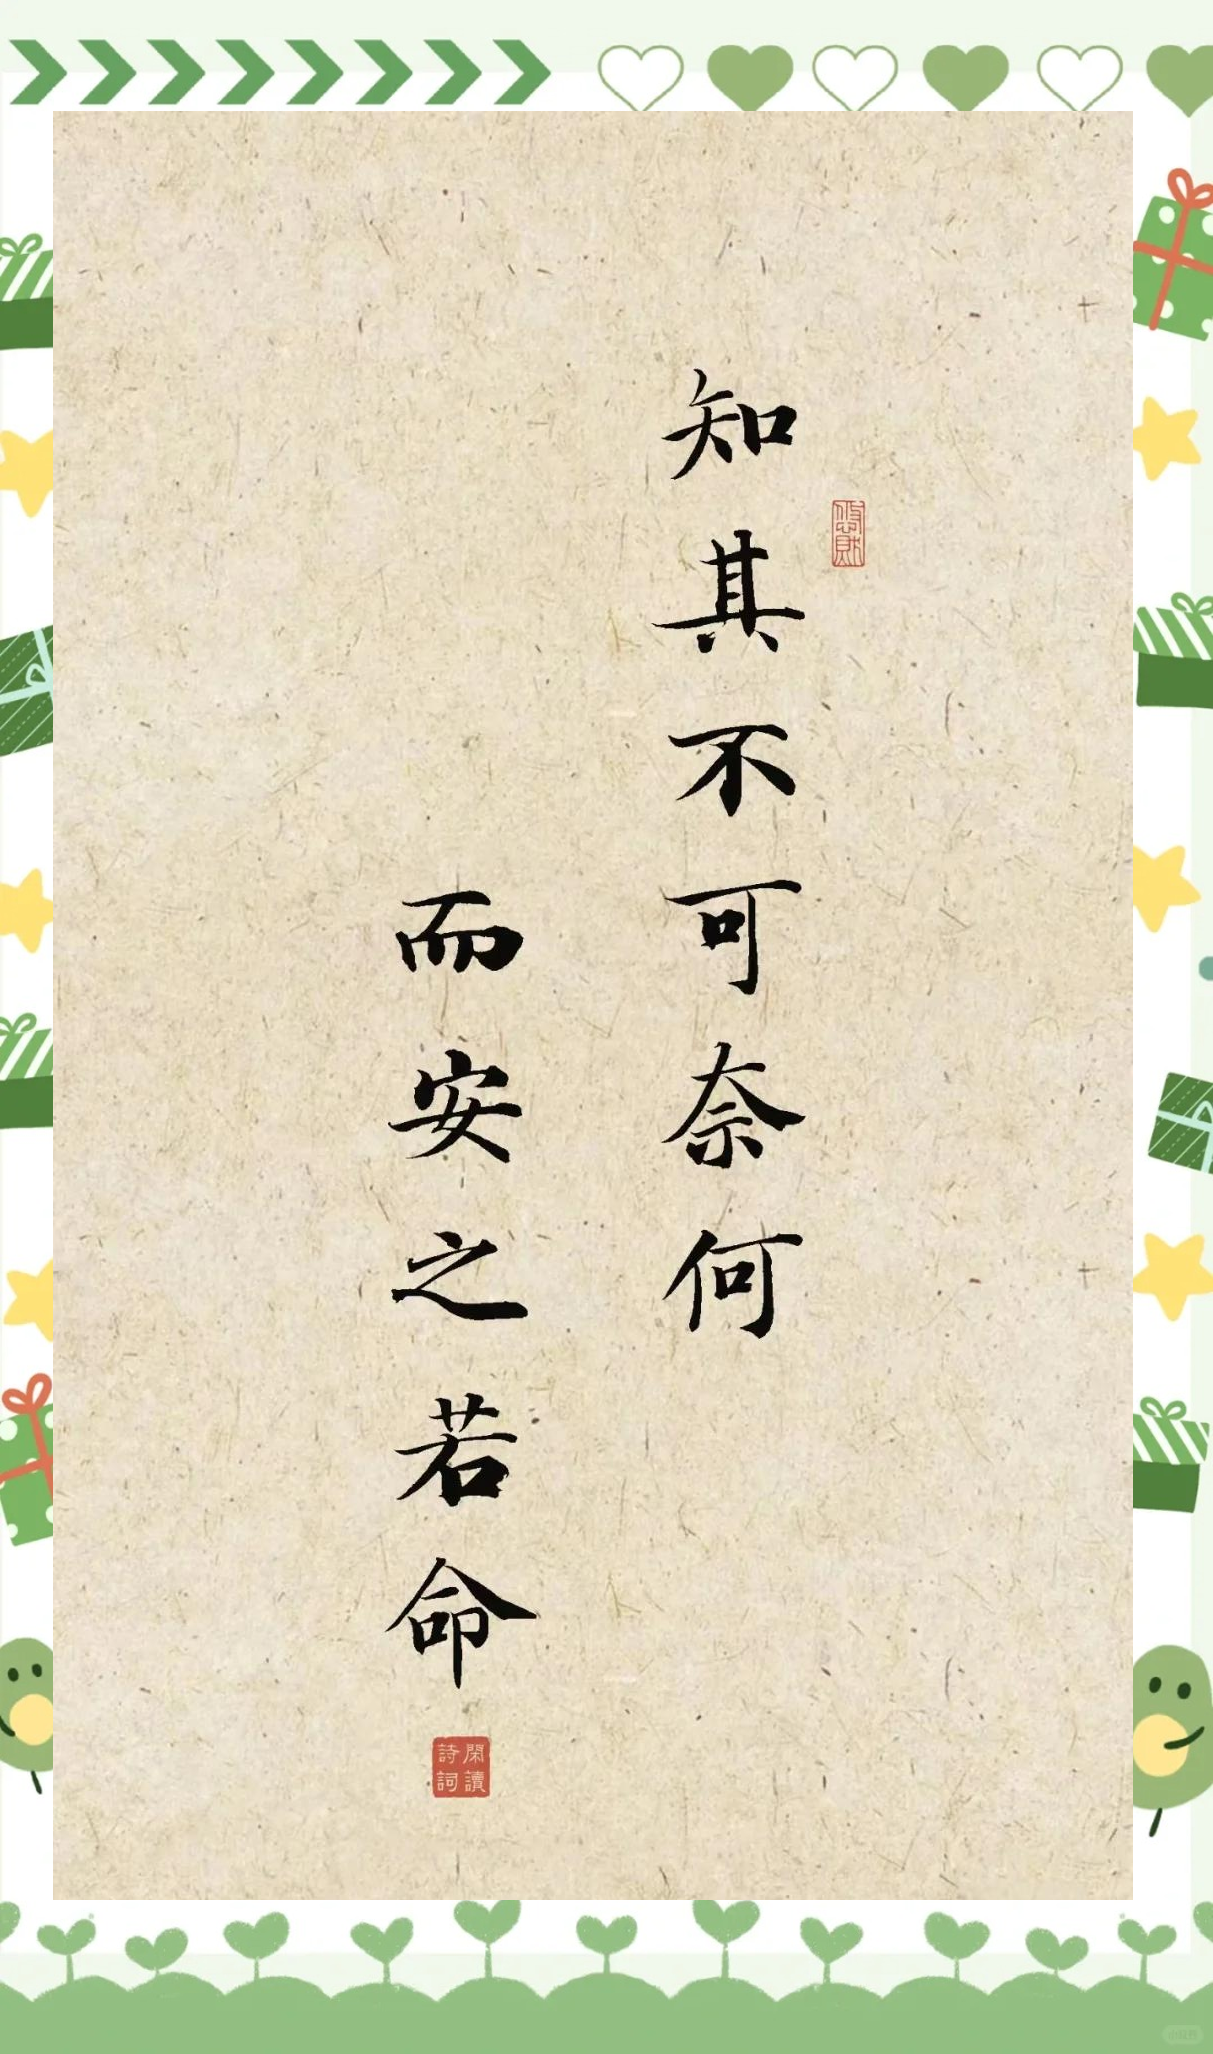 知其不可奈何
而安之若命
閑讀
詩詞